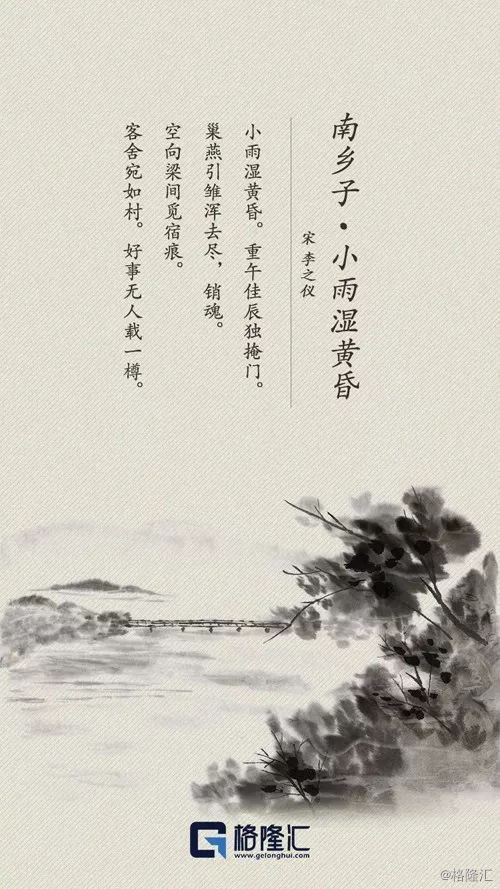 南乡子·小雨湿黄昏
宋 李之仪
小雨湿黄昏。重午佳辰独掩门。
巢燕引雏浑去尽，销魂。
空向梁间觅宿痕。
客舍宛如村。好事无人载一樽。
格隆汇
www.gelonghui.com
@格隆汇